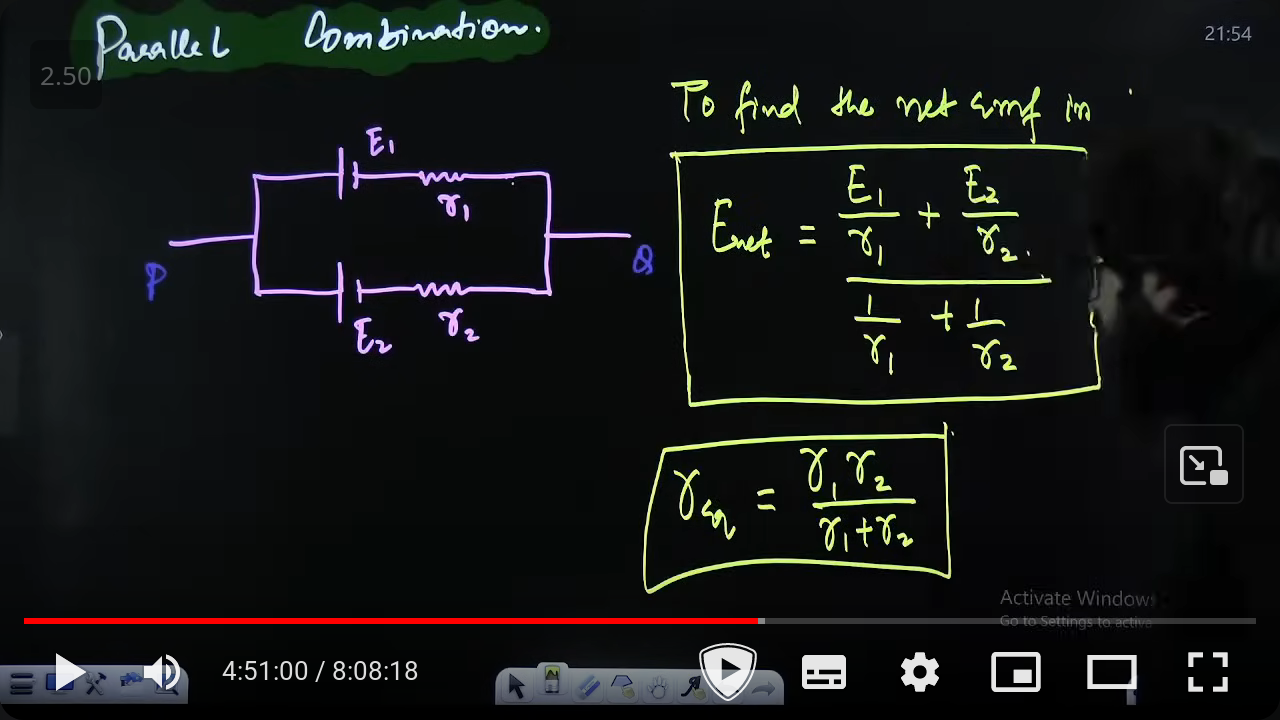 Parallel Combination.
21:54
2.50
To find the net emf in
E1
r1
P
Q
E2
r2
Enet = E1/r1 + E2/r2.
1/r1 + 1/r2
req = r1 r2 / r1+r2
Activate Windows
Go to Settings to activa
4:51:00 / 8:08:18